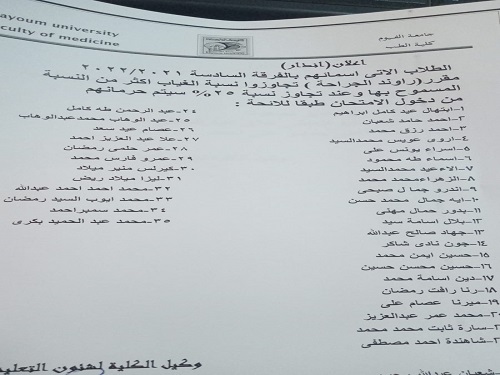 ayoum university
culty of medicine
جامعة الفيوم
كلية الطب
اعلان (انذار)
الطلاب الاتى اسمائهم بالفرقة السادسة ٢٠٢٢/٢٠٢١
مقرر (راوند الجراحة) تجاوزوا نسبة الغياب اكثر من النسبة
المسموح بها وعند تجاوز نسبة ٢٥% سيتم حرمانهم
من دخول الامتحان طبقا للائحة :
١-ابتهال عيد كامل ابراهيم
٢-احمد حامد شعبان
٣-احمد رزق محمد
٤-اروى عويس محمدالسيد
٥-اسراء يونس على
٦-اسماء طه محمود
٧-الاء عيد محمدالسيد
٨-الزهراء محمد محمد
٩-اندرو جمال صبحى
١٠-ايه جمال محمد حسن
١١-بدور جمال مهنى
١٢-بلال اسامة سيد
١٣-جهاد صالح عبدالله
١٤-جون نادى شاكر
١٥-حسين ايمن محمد
١٦-حسين محسن حسين
١٧-دين اسامة محمد
١٨-رنا رافت رمضان
١٩-ميرنا عصام على
محمد عمر عبدالعزيز
سارة ثابت محمد محمد
شاهندة احمد مصطفى
٢٤-عبد الرحمن طه كامل
٢٥-عبد الوهاب محمد عبدالوهاب
٢٦-عصام عيد سعد
٢٧-علا عبد العزيز احمد
٢٨-عمر حلمى رمضان
٢٩-عمرو فارس محمد
٣٠-كيرلس منير ميلاد
٣١-ليزا ميلاد رياض
٣٢-محمد احمد احمد عبدالله
٣٣-محمد ايوب السيد رمضان
٣٤-محمد سمير احمد
٣٥-محمد عبد الحميد بكرى
وكيل الكلية لشئون التعليم